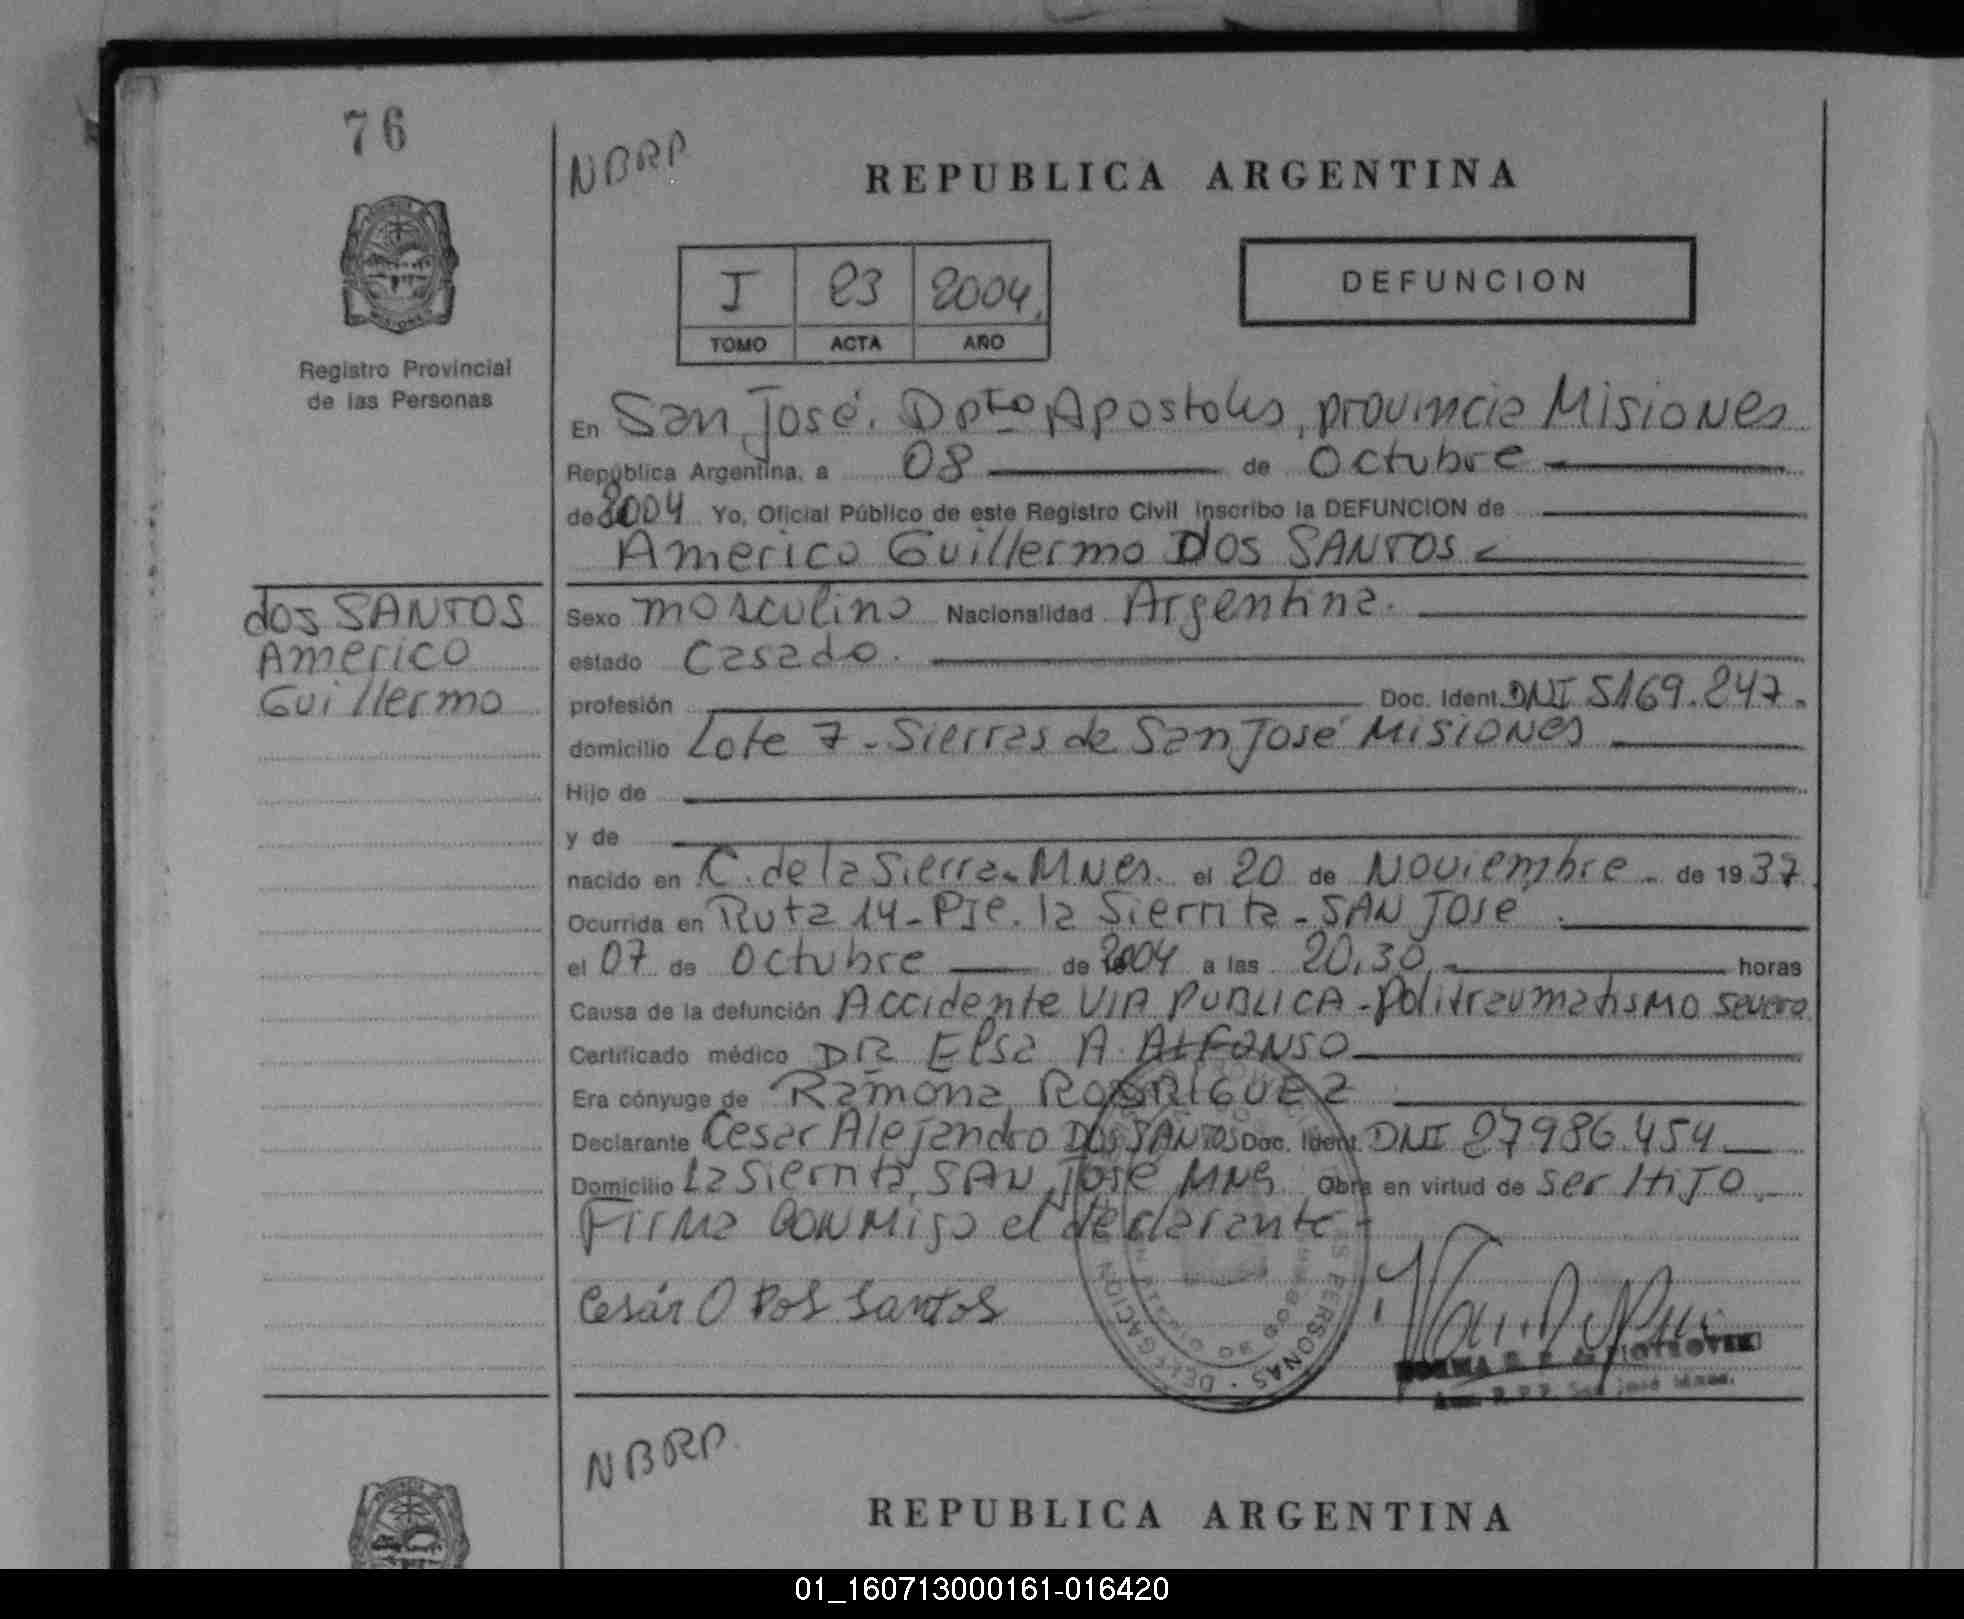 76
NBRP
REPUBLICA ARGENTINA
I 23 2004
TOMO ACTA AÑO
DEFUNCION
Registro Provincial
de las Personas
En San José. Dpto Apostoles, provincia Misiones
República Argentina, a 08 de Octubre
de 2004 Yo, Oficial Público de este Registro Civil inscribo la DEFUNCION de
Americo Guillermo DOS SANTOS
dos SANTOS
Americo
Guillermo
Sexo masculino Nacionalidad Argentina.
estado Casado.
profesión Doc. Ident. DNI 5169.247.
domicilio Lote 7 - Sierras de San José Misiones
Hijo de
y de
nacido en C. de la Sierra - Mnes. el 20 de Noviembre - de 1937
Ocurrida en Ruta 14 - Pje. la Sierrita - SAN JOSE
el 07 de Octubre de 2004 a las 20,30 horas
Causa de la defunción Accidente VIA PUBLICA - Politraumatismo severo
Certificado médico DR Elsa A. ALFONSO
Era cónyuge de Ramona RODRIGUEZ
Declarante Cesar Alejandro DOS SANTOS Doc. Ident. DNI 27986.454
Domicilio La Sierrita, SAN JOSE MNES Obra en virtud de ser HIJO
Firma conmigo el declarante -
Cesár O Dos Santos
PERSONAS - DELEGACION
NORMA
San José Mnes.
NBRP
REPUBLICA ARGENTINA
01_160713000161-016420